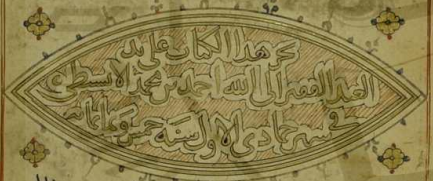 تم هذا الكتاب على يد
العبد الفقير الى الله احمد بن محمد الانسطراى
فى شهر جمادى الاول سنة خمس وثمانمائه